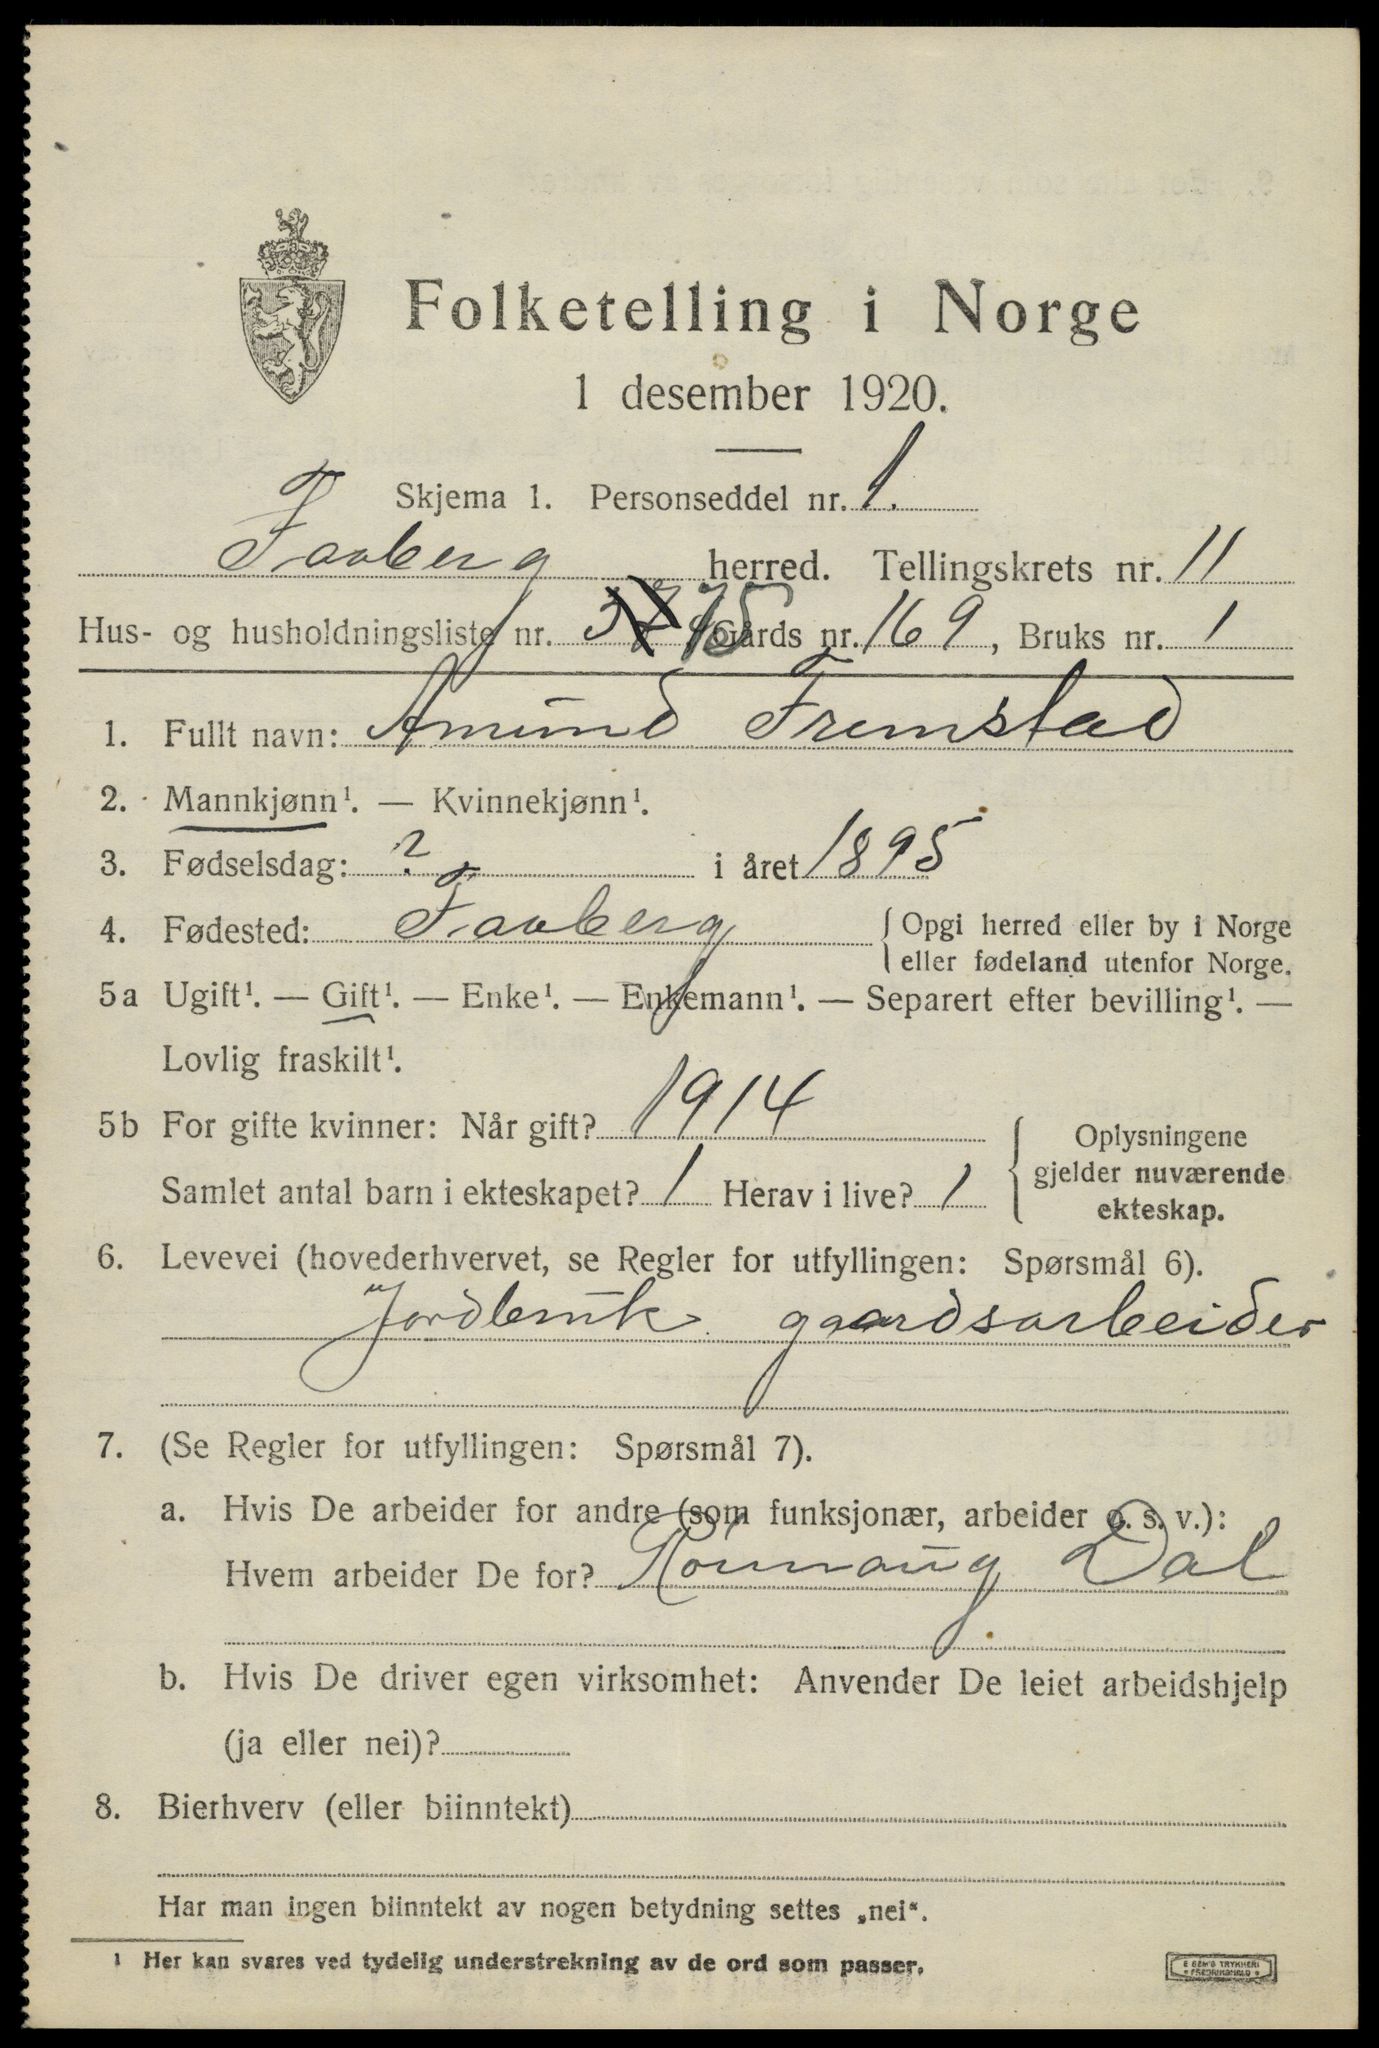 Folketelling i Norge
1 desember 1920.
Skjema 1. Personseddel nr. 1.
Faaberg herred. Tellingskrets nr. 11
Hus- og husholdningsliste nr. 75 Gårds nr. 169, Bruks nr. 1
1. Fullt navn: Amund Fremstad
2. Mannkjønn¹. — Kvinnekjønn¹.
3. Fødselsdag: ? i året 1895
4. Fødested: Faaberg { Opgi herred eller by i Norge
eller fødeland utenfor Norge.
5a Ugift¹. — Gift¹. — Enke¹. — Enkemann¹. — Separert efter bevilling¹. —
Lovlig fraskilt¹.
5b For gifte kvinner: Når gift? 1914
Samlet antal barn i ekteskapet? 1 Herav i live? 1
{ Oplysningene
gjelder nuværende
ekteskap.
6. Levevei (hovederhvervet, se Regler for utfyllingen: Spørsmål 6).
Jordbruk gaardsarbeider
7. (Se Regler for utfyllingen: Spørsmål 7).
a. Hvis De arbeider for andre (som funksjonær, arbeider o. s. v.):
Hvem arbeider De for? Rönnaug Dal
b. Hvis De driver egen virksomhet: Anvender De leiet arbeidshjelp
(ja eller nei)?
8. Bierhverv (eller biinntekt)
Har man ingen biinntekt av nogen betydning settes „nei“.
¹ Her kan svares ved tydelig understrekning av de ord som passer.
E SEM'S TRYKKERI
FREDRIKSHALD